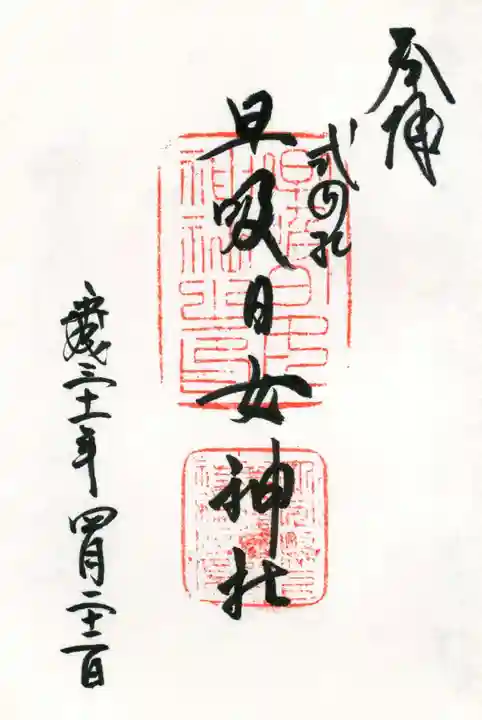 奉拝
式内社
早吸日女神社
平成三十一年四月二十二日